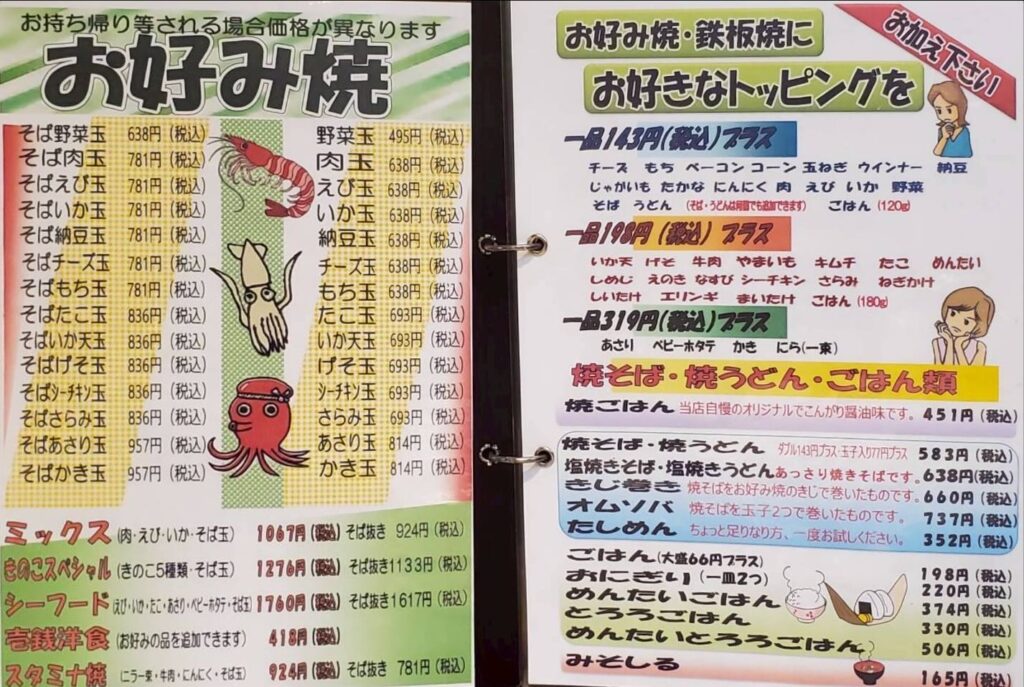 お持ち帰り等される場合価格が異なります
お好み焼
そば野菜玉 638円(税込)
そば肉玉 781円(税込)
そばえび玉 781円(税込)
そばいか玉 781円(税込)
そば納豆玉 781円(税込)
そばチーズ玉 781円(税込)
そばもち玉 781円(税込)
そばたこ玉 836円(税込)
そばいか天玉 836円(税込)
そばげそ玉 836円(税込)
そばシーチキン玉 836円(税込)
そばさらみ玉 836円(税込)
そばあさり玉 957円(税込)
そばかき玉 957円(税込)
野菜玉 495円(税込)
肉玉 638円(税込)
えび玉 638円(税込)
いか玉 638円(税込)
納豆玉 638円(税込)
チーズ玉 638円(税込)
もち玉 638円(税込)
たこ玉 693円(税込)
いか天玉 693円(税込)
げそ玉 693円(税込)
シーチキン玉 693円(税込)
さらみ玉 693円(税込)
あさり玉 814円(税込)
かき玉 814円(税込)
ミックス(肉・えび・いか・そば玉) 1067円(税込) そば抜き 924円(税込)
きのこスペシャル(きのこ5種類・そば玉) 1276円(税込) そば抜き1133円(税込)
シーフード(えび・いか・たこ・あさり・ベビーホタテ・そば玉) 1760円(税込) そば抜き1617円(税込)
壱銭洋食(お好みの品を追加できます) 418円(税込)
スタミナ焼(ニラ一束・牛肉・にんにく・そば玉) 924円(税込) そば抜き 781円(税込)
お好み焼・鉄板焼に
お好きなトッピングを
お加え下さい
一品143円(税込)プラス
チーズ もち ベーコン コーン 玉ねぎ ウインナー 納豆
じゃがいも たかな にんにく 肉 えび いか 野菜
そば うどん (そば・うどんは何個でも追加できます) ごはん(120g)
一品198円(税込)プラス
いか天 げそ 牛肉 やまいも キムチ たこ めんたい
しめじ えのき なすび シーチキン さらみ ねぎかけ
しいたけ エリンギ まいたけ ごはん(180g)
一品319円(税込)プラス
あさり ベビーホタテ かき にら(一束)
焼そば・焼うどん・ごはん類
焼ごはん 当店自慢のオリジナルでこんがり醤油味です。 451円(税込)
焼そば・焼うどん ダブル143円プラス・玉子入り77円プラス 583円(税込)
塩焼きそば・塩焼きうどん あっさり焼きそばです。 638円(税込)
きじ巻き 焼そばをお好み焼のきじで巻いたものです。 660円(税込)
オムソバ 焼そばを玉子2つで巻いたものです。 737円(税込)
たしめん ちょっと足りなり方、一度お試しください。 352円(税込)
ごはん(大盛66円プラス) 198円(税込)
おにぎり(一皿2つ) 220円(税込)
めんたいごはん 374円(税込)
とろろごはん 330円(税込)
めんたいとろろごはん 506円(税込)
みそしる 165円(税込)